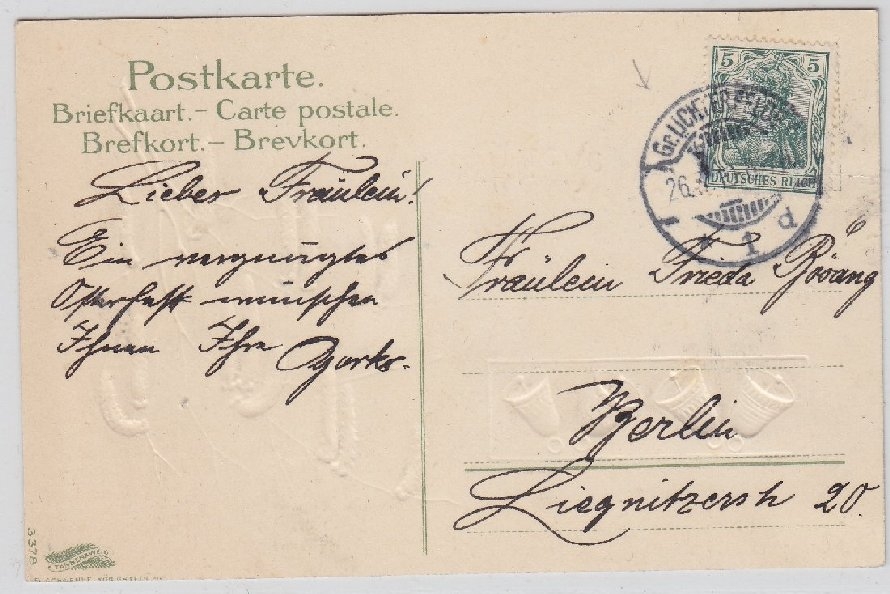 Postkarte.
Briefkaart.- Carte postale.
Brefkort.- Brevkort.
Liebes Fräulein!
Ein vergnügtes
Osterfest wünschen
Ihnen Ihre
5 5
DEUTSCHES REICH
Gr. LICHTERFELDE
26.
* 1 d
Fräulein Frieda
Berlin
Liegnitzerstr 20.
3378